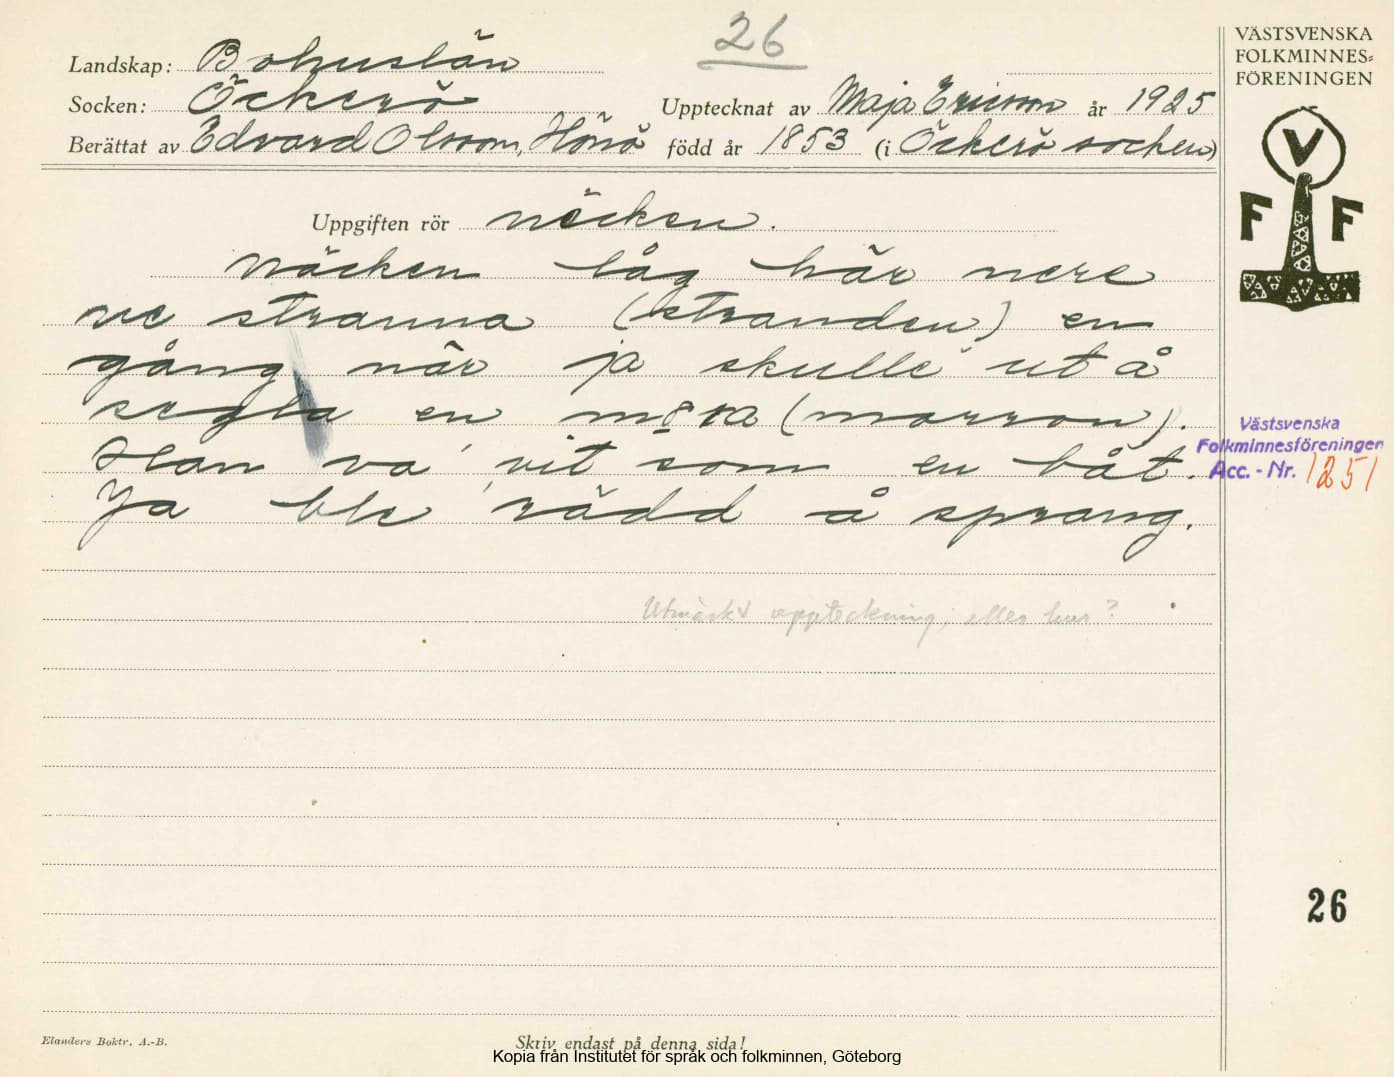 26
VÄSTSVENSKA
FOLKMINNES-
FÖRENINGEN
Landskap: Bohuslän
Socken: Öckerö
Upptecknat av Maja Ericson år 1925
Berättat av Edvard Olsson, Hönö född år 1853 (i Öckerö socken)
V
F F
Uppgiften rör näcken.
Näcken låg här nere
ve stranna (stranden) en
gång när ja skulle ut å
segla en (morron).
Han va' vit som en båt.
Ja ble rädd å sprang.
Västsvenska
Folkminnesföreningen
Acc. - Nr. 1251
Utmärkt uppteckning, eller hur?
26
Elanders Boktr. A.-B.
Skriv endast på denna sida!
Kopia från Institutet för språk och folkminnen, Göteborg